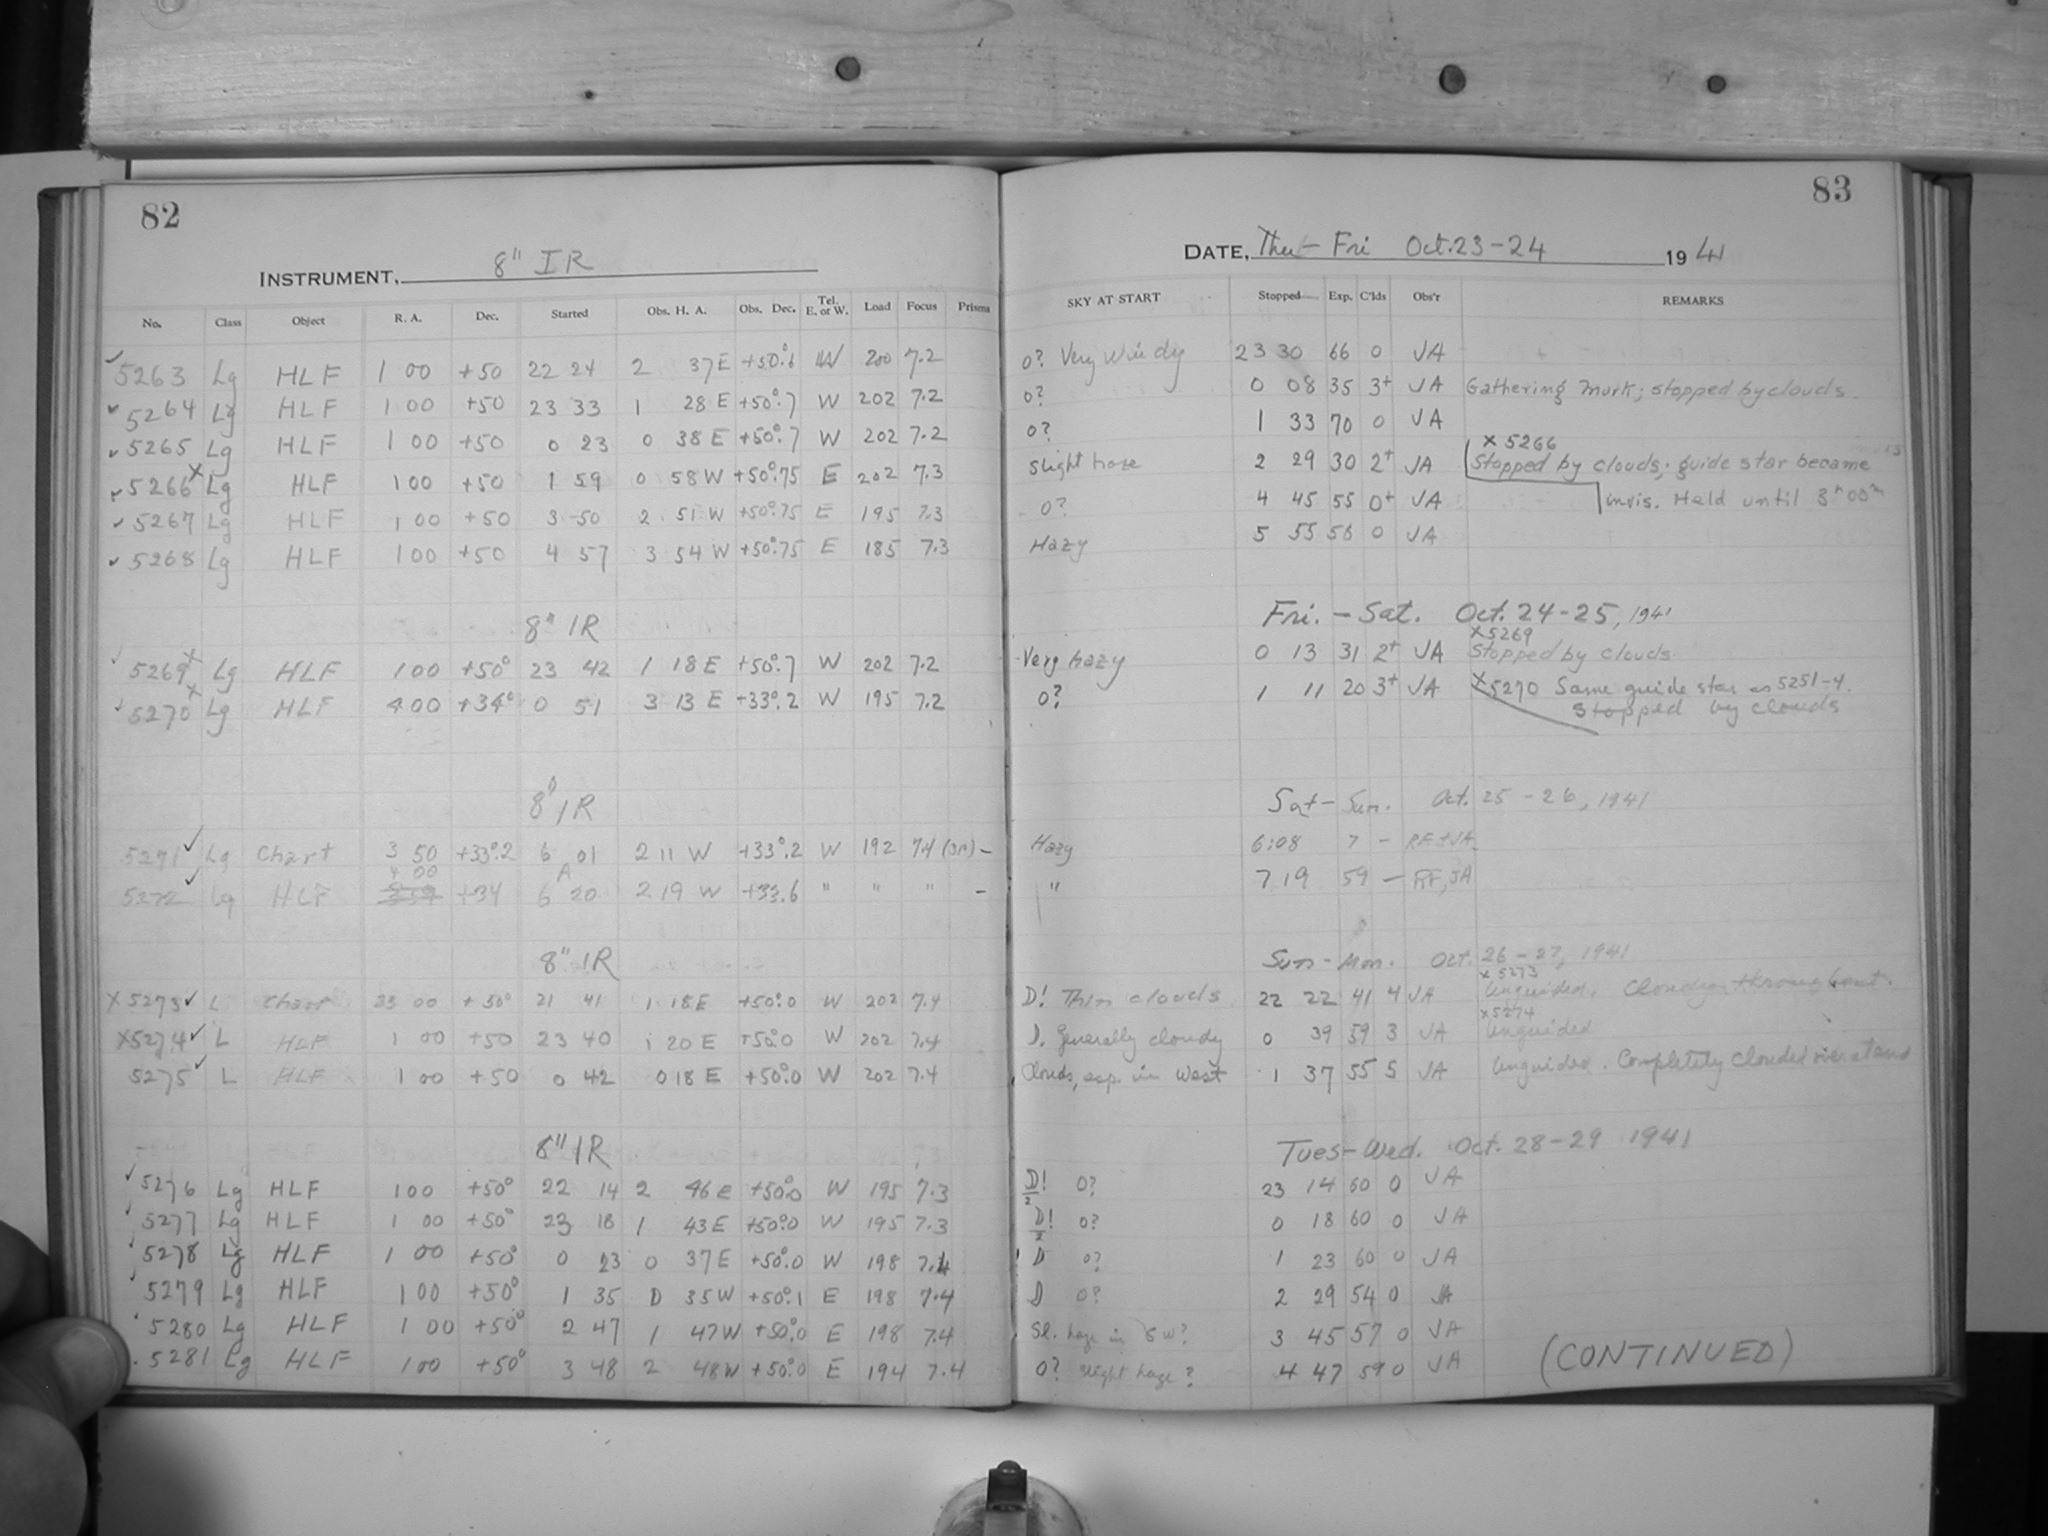 82
INSTRUMENT, 8" IR
No. Class Object R. A. Dec. Started Obs. H. A. Obs. Dec. Tel. E. or W. Load Focus Prisms
5263 Lg HLF 1 00 +50 22 24 2 37E +50°.6 W 200 7.2
5264 Lg HLF 1 00 +50 23 33 1 28 E +50°.7 W 202 7.2
5265 Lg HLF 1 00 +50 0 23 0 38 E +50°.7 W 202 7.2
5266x Lg HLF 1 00 +50 1 59 0 58 W +50°.75 E 202 7.3
5267 Lg HLF 1 00 +50 3 50 2 51 W +50°.75 E 195 7.3
5268 Lg HLF 1 00 +50 4 57 3 54 W +50°.75 E 185 7.3
8" IR
5269x Lg HLF 1 00 +50° 23 42 1 18 E +50°.7 W 202 7.2
5270x Lg HLF 4 00 +34° 0 51 3 13 E +33°.2 W 195 7.2
8" IR
5271 Lg Chart 3 50 +33°.2 6 01 2 11 W +33°.2 W 192 7.4 –
5272 Lg HLF 4 00 +34 6 20 2 19 W +33.6 " " " –
8" IR
x5273 L Chart 23 00 +50° 21 41 1 18 E +50°.0 W 202 7.4
x5274 L HLF 1 00 +50 23 40 1 20 E +50°.0 W 202 7.4
5275 L HLF 1 00 +50 0 42 0 18 E +50°.0 W 202 7.4
8" IR
5276 Lg HLF 1 00 +50° 22 14 2 46 E +50°.0 W 195 7.3
5277 Lg HLF 1 00 +50° 23 18 1 43 E +50°.0 W 195 7.3
5278 Lg HLF 1 00 +50° 0 23 0 37 E +50°.0 W 198 7.4
5279 Lg HLF 1 00 +50° 1 35 0 35 W +50°.1 E 198 7.4
5280 Lg HLF 1 00 +50° 2 47 1 47 W +50°.0 E 198 7.4
5281 Lg HLF 1 00 +50° 3 48 2 48 W +50°.0 E 194 7.4
83
DATE, Fri Oct. 23-24 1941
SKY AT START Stopped Exp. C'lds Obs'r REMARKS
0? Very windy 23 30 66 0 JA
0? 0 08 35 3+ JA Gathering murk; stopped by clouds.
0? 1 33 70 0 JA
x 5266
Slight haze 2 29 30 2+ JA Stopped by clouds; guide star became
0? 4 45 55 0+ JA invis. Held until 3h 00m
Hazy 5 55 56 0 JA
Fri. - Sat. Oct. 24-25, 1941
x5269
Very hazy 0 13 31 2+ JA Stopped by clouds
0? 1 11 20 3+ JA x5270 Same guide star as 5251-4.
Stopped by clouds
Sat - Sun. Oct. 25 - 26, 1941
Hazy 6:08 7 – RF + JA
" 7 19 59 – RF, JA
Sun - Mon. Oct. 26 - 27, 1941
x 5273
D! Thin clouds 22 22 41 4 JA Unguided. Cloudy throughout.
x5274
D. Generally cloudy 0 39 59 3 JA Unguided
Clouds, esp. in West 1 37 55 5 JA Unguided. Completely clouded over at end
Tues - Wed. Oct. 28-29 1941
D!/2 0? 23 14 60 0 JA
D!/2 0? 0 18 60 0 JA
D 0? 1 23 60 0 JA
D 0? 2 29 54 0 JA
Sl. haze in SW? 3 45 57 0 JA
0? slight haze? 4 47 59 0 JA
(CONTINUED)